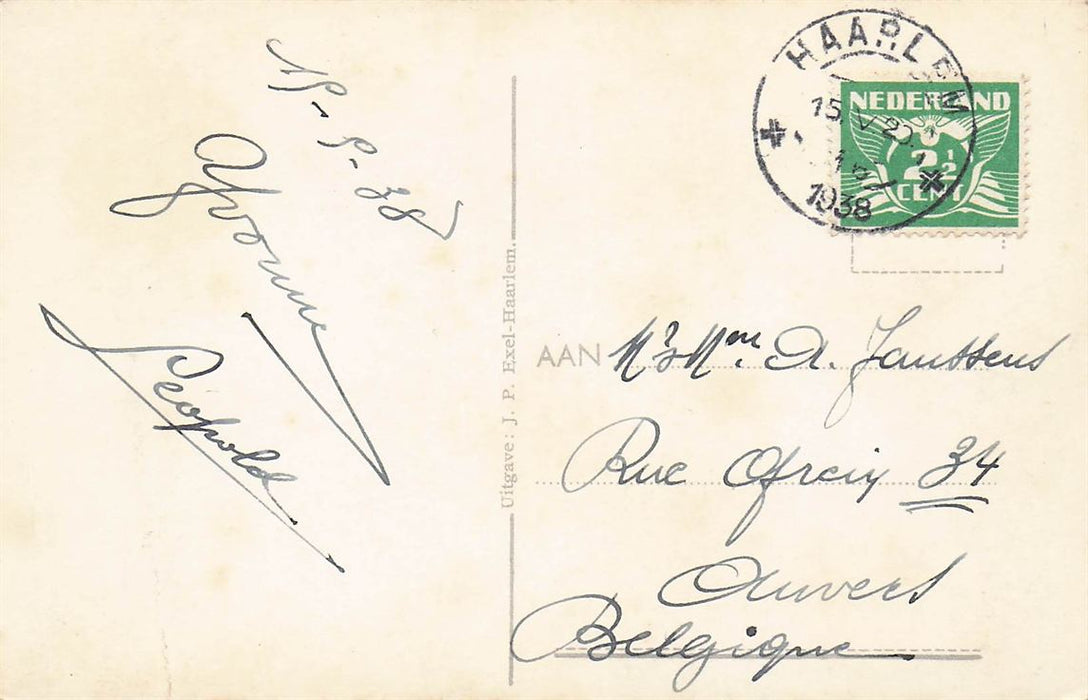 15-5-38
Yvonne
Leopold
Uitgave: J. P. Exel-Haarlem.
HAARLEM
15.V 20
1938
NEDERLAND
2½
CENT
AAN Mr & Mme. A. Janssens
Rue 34
Anvers
Belgique